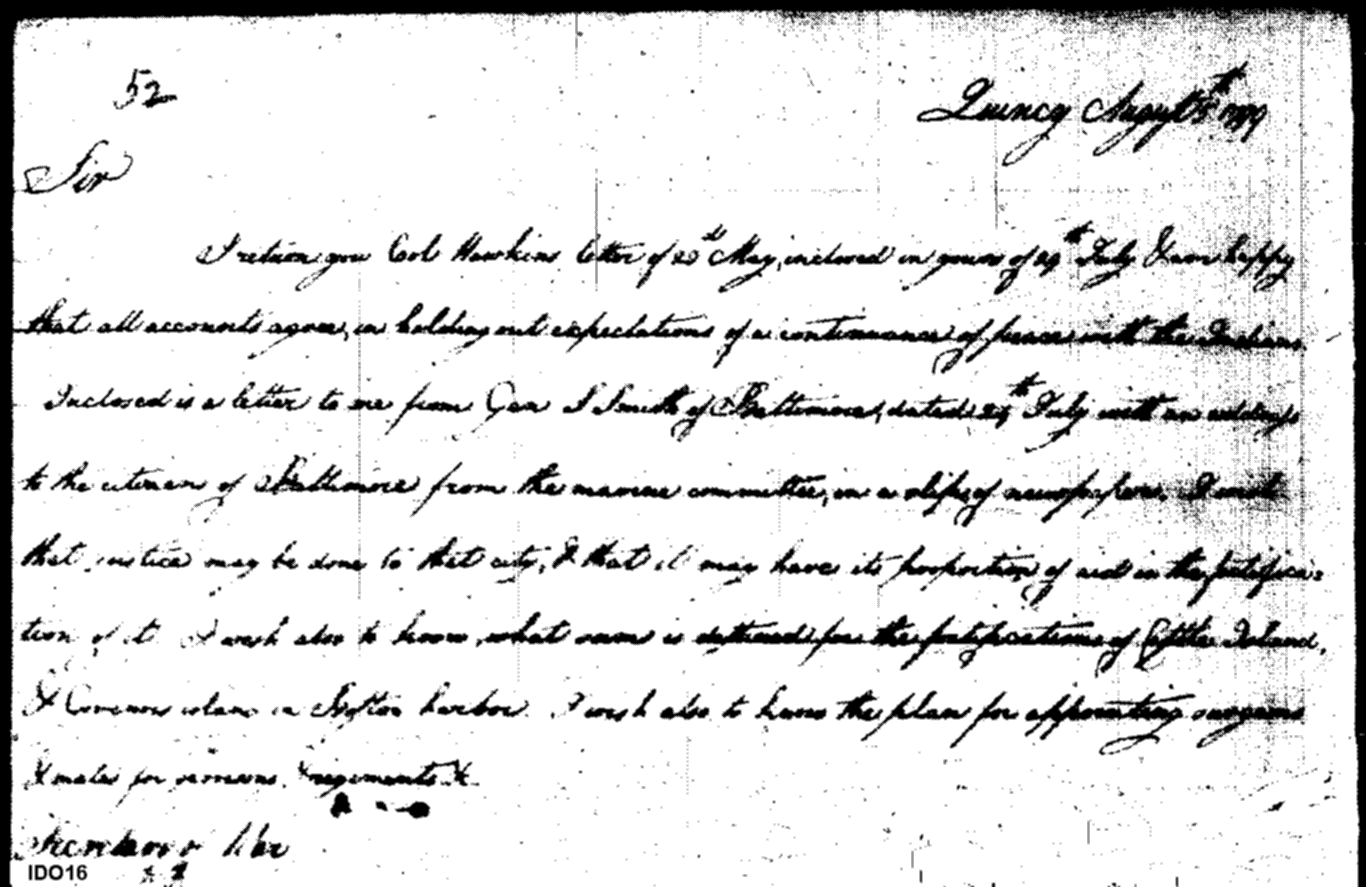 52
Quincy August 5th 1799
Sir
I return you Col Hawkins letter of 20th May, inclosed in yours of 29th July & am happy
that all accounts agree, in holding out expectations of a continuance of peace with the Indians.
Inclosed is a letter to me from Gen S Smith of Baltimore, dated 29th July with an address
to the citizens of Baltimore from the marine committee, in a slip of newspaper. I wish
that justice may be done to that city, & that it may have its proportion of aid in the fortifica=
tion of it I wish also to know what sum is destined for the fortifications of Castle Island,
& Governors island in Boston harbor. I wish also to know the plan for appointing surgeons
& mates for garrisons, & regiments &c
Secretary of War
IDO16